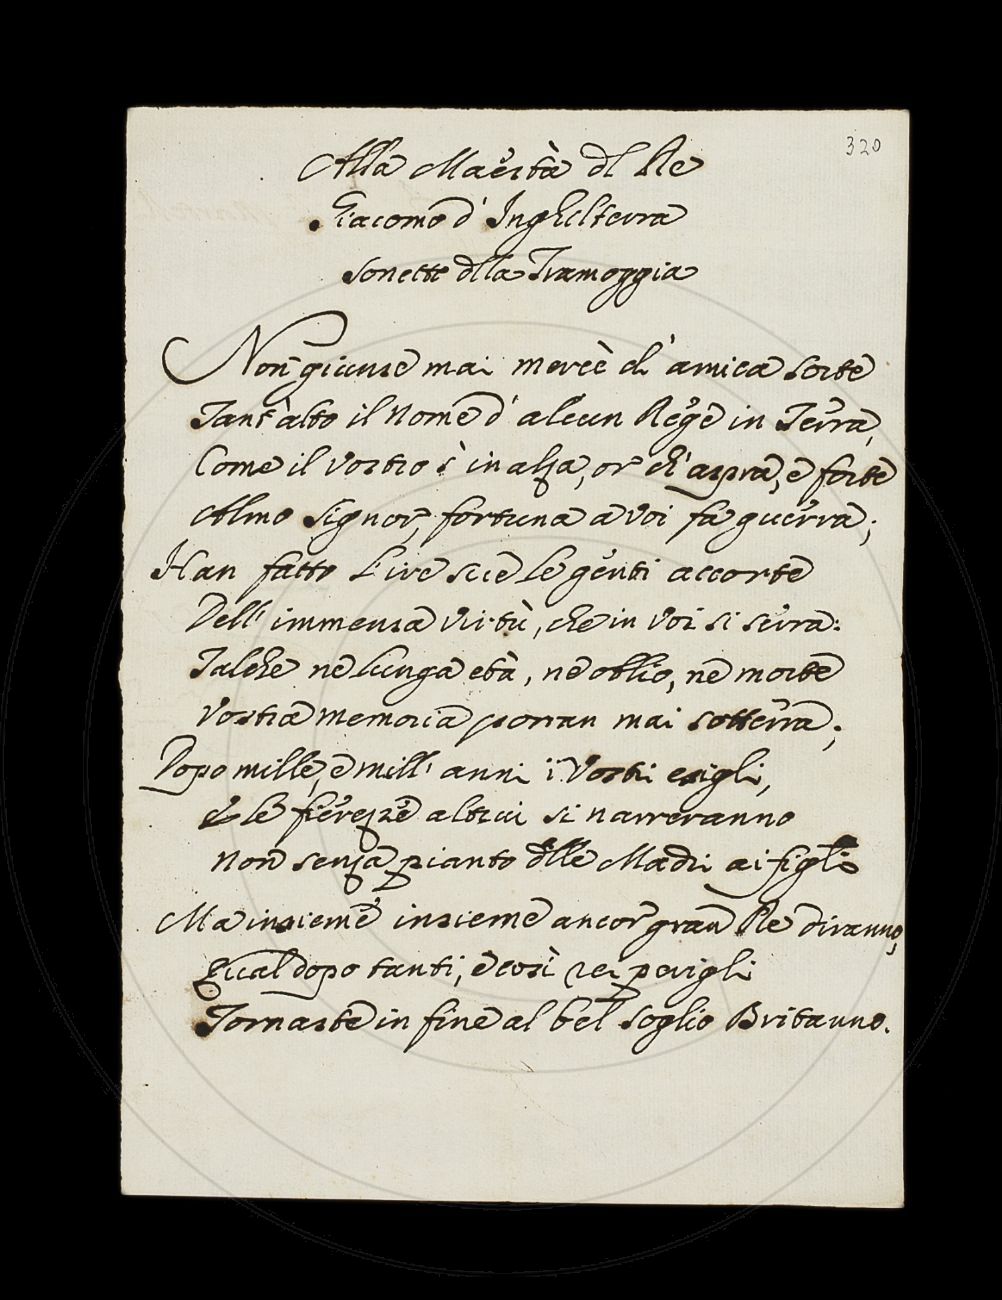 320
Alla Maestà dl Re
Giacomo d' Inghelterra
Sonetto dlla Tramoggia
Non giunse mai mercè d' amica sorte
Tant' alto il Nome d' alcun Rege in Terra,
Come il vostro s' inalza, or ch' aspra, e forte
Almo Signor, fortuna a voi fa guerra;
Han fatto l' ire sue le genti accorte
Dell' immensa virtù, che in voi si serra:
Talche ne lunga età, ne oblio, ne morte
Vostra memoria porran mai sotterra;
Dopo mille, e mill' anni i Vostri esigli,
E le fierezze altrui si narreranno
Non senza pianto dlle Madri ai figli
Ma insieme insieme ancor gran Re diranno,
Qual dopo tanti, e così rei perigli
Tornaste in fine al bel Soglio Britanno.